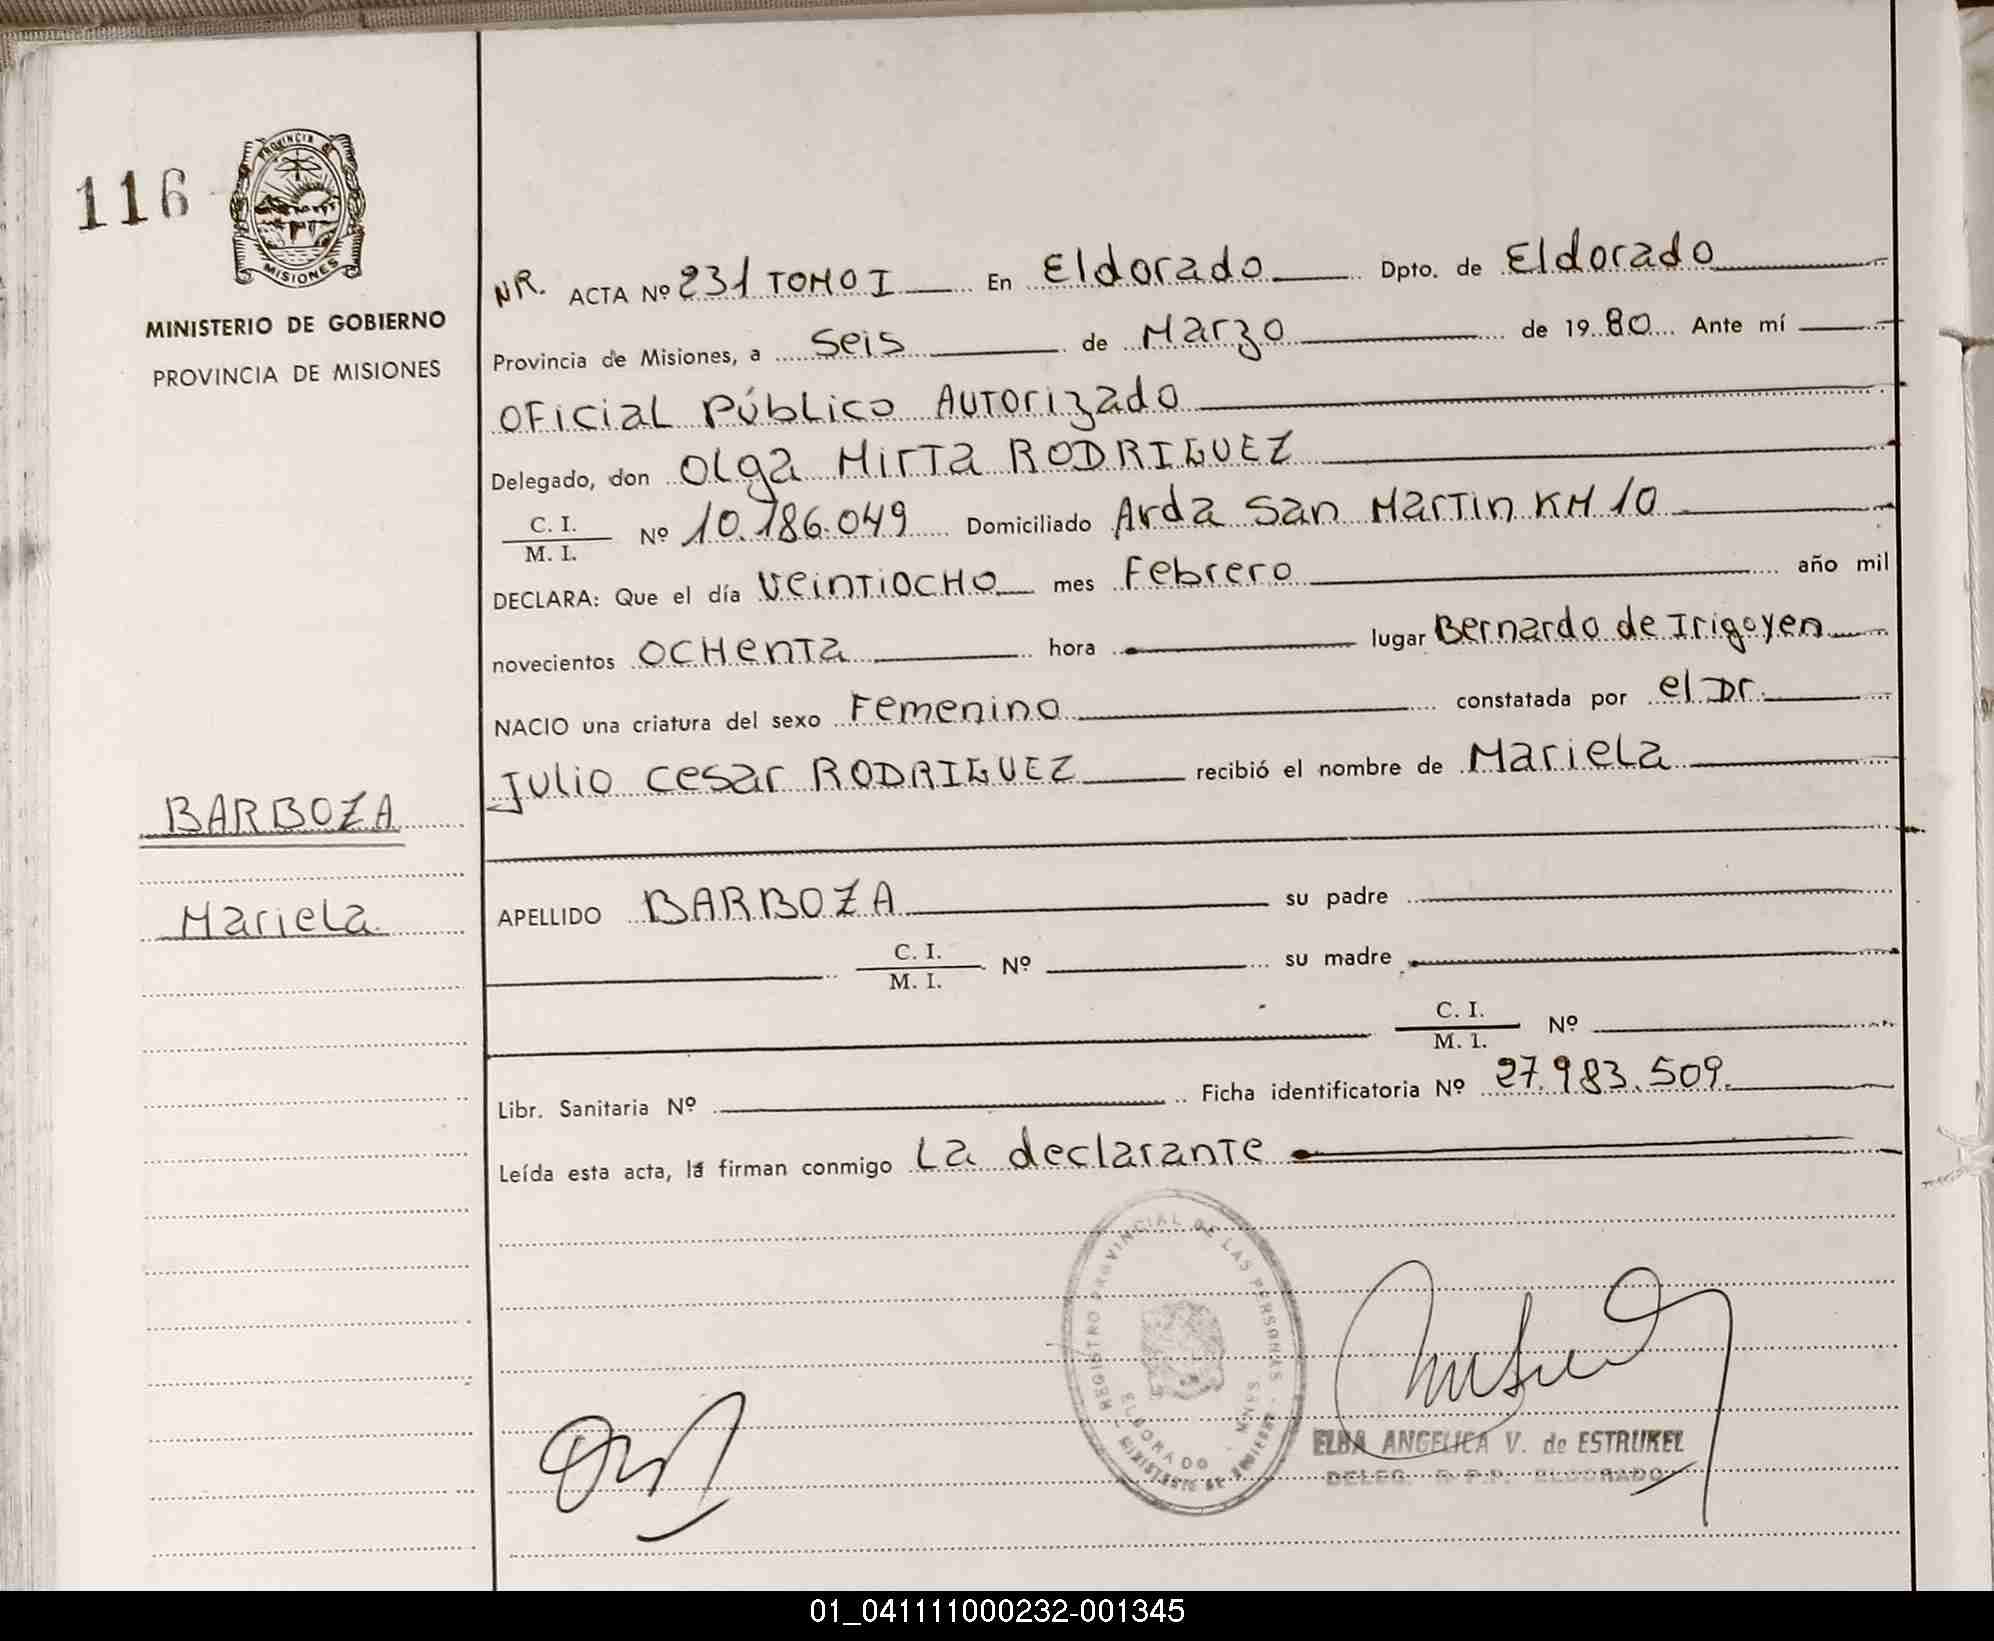 116
PROVINCIA DE
MISIONES
MINISTERIO DE GOBIERNO
PROVINCIA DE MISIONES
BARBOZA
Mariela
NR. ACTA Nº 231 TOMO I En Eldorado Dpto. de Eldorado
Provincia de Misiones, a seis de Marzo de 1980 Ante mí
Oficial Público Autorizado
Delegado, don Olga Mirta RODRIGUEZ
C. I.
M. I.
Nº 10.186.049 Domiciliado Avda San Martin KM 10
DECLARA: Que el día Veintiocho mes Febrero año mil
novecientos ochenta hora lugar Bernardo de Irigoyen
NACIO una criatura del sexo Femenino constatada por el Dr.
Julio Cesar RODRIGUEZ recibió el nombre de Mariela
APELLIDO BARBOZA su padre
C. I.
M. I.
Nº su madre
C. I.
M. I.
Nº
Libr. Sanitaria Nº Ficha identificatoria Nº 27.983.509
Leída esta acta, la firman conmigo La declarante
REGISTRO PROVINCIAL DE LAS PERSONAS
ELDORADO - MNES
MINISTERIO DE GOBIERNO
ELBA ANGELICA V. de ESTRUKEL
DELEG. R.P.P. ELDORADO
01_041111000232-001345